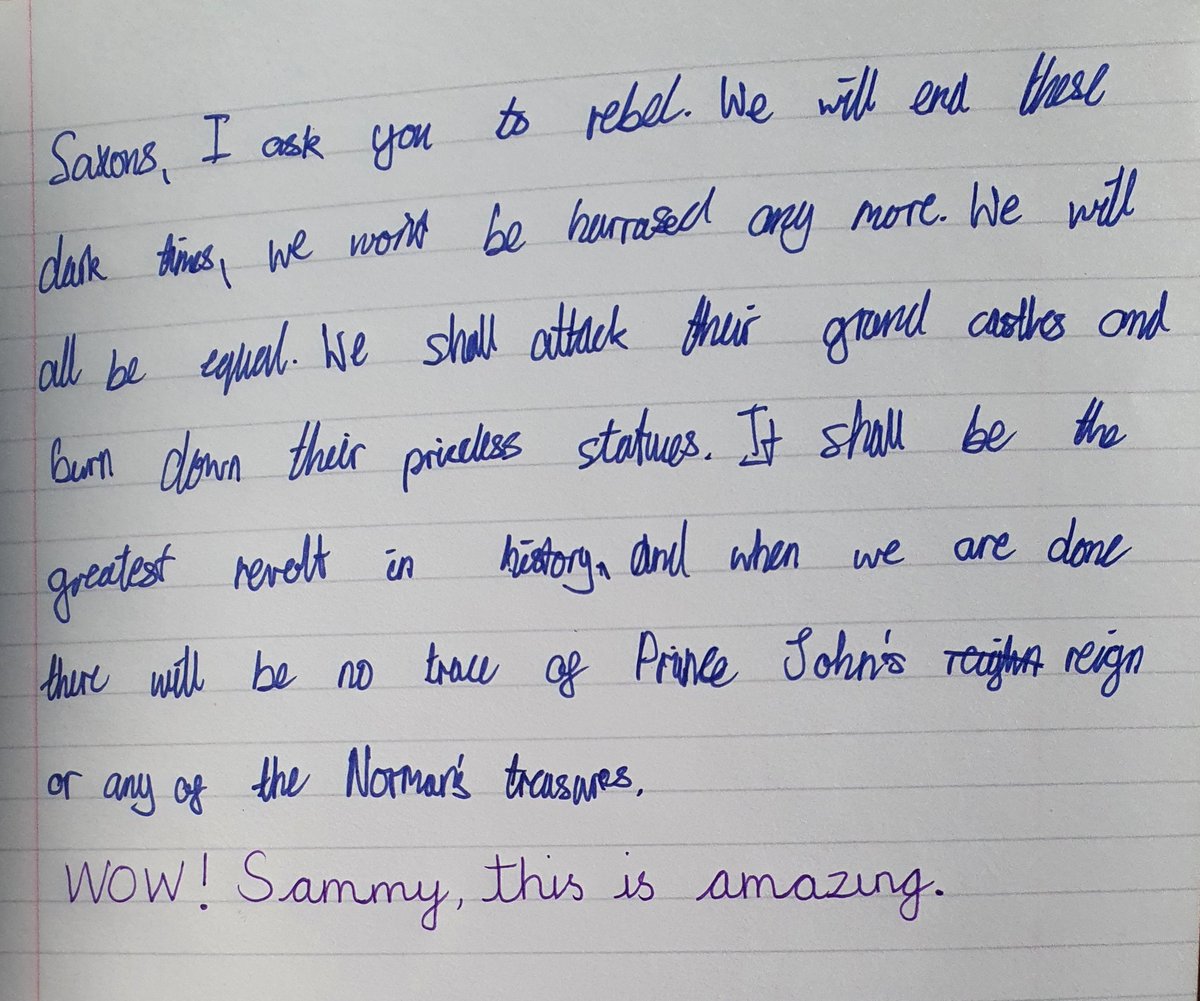 Saxons, I ask you to rebel. We will end these
dark times, we won't be harrased any more. We will
all be equal. We shall attack their grand castles and
burn down their priceless statues. It shall be the
greatest revolt in history, and when we are done
there will be no trace of Prince John's reighn reign
or any of the Norman's treasures.
WOW! Sammy, this is amazing.